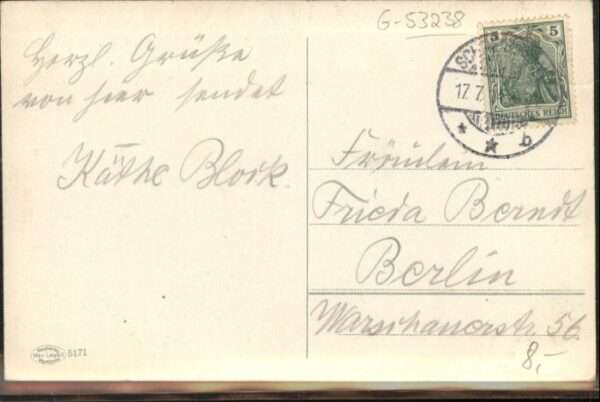 G-53238
Herzl. Grüße
von hier sendet
Käthe Block.
5 5
DEUTSCHES REICH
17.7.
* * b
Fräulein
Frieda Berndt
Berlin
Warschauerstr. 56.
8,-
5171